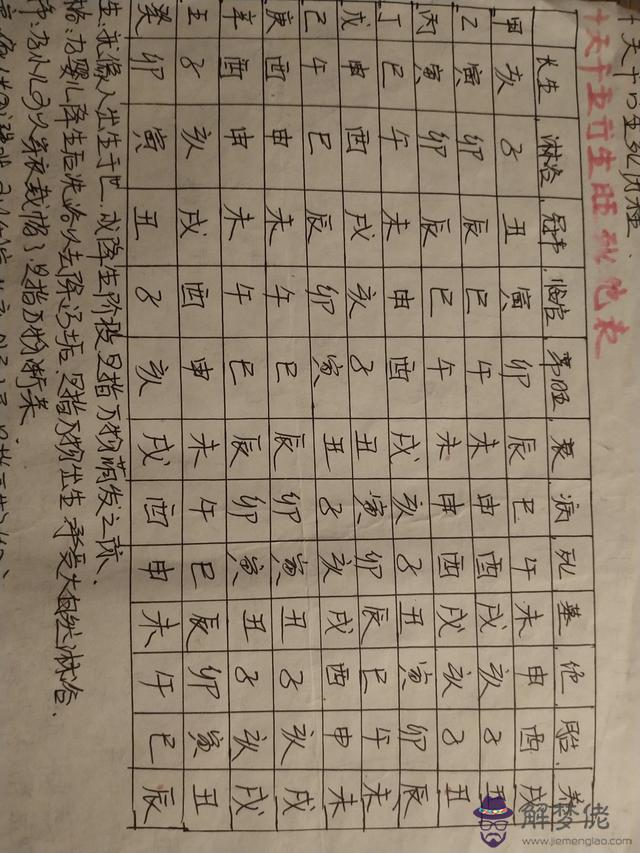 十天干
十天干五行生旺死绝表
长生 淋浴 冠带 临官 帝旺 衰 病 死 墓 绝 胎 养
甲 亥 子 丑 寅 卯 辰 巳 午 未 申 酉 戌
乙 寅 卯 辰 巳 午 未 申 酉 戌 亥 子 丑
丙 寅 卯 辰 巳 午 未 申 酉 戌 亥 子 丑
丁 巳 午 未 申 酉 戌 亥 子 丑 寅 卯 辰
戊 申 酉 戌 亥 子 丑 寅 卯 辰 巳 午 未
己 午 巳 辰 卯 寅 丑 子 亥 戌 酉 申 未
庚 酉 申 未 午 巳 辰 卯 寅 丑 子 亥 戌
辛 酉 申 未 午 巳 辰 卯 寅 丑 子 亥 戌
壬 子 亥 戌 酉 申 未 午 巳 辰 卯 寅 丑
癸 卯 寅 丑 子 亥 戌 酉 申 未 午 巳 辰
生、就像人出生于世、或降生阶段是指万物萌发之际、
浴:为婴儿降生后洗浴以去除污垢、是指万物出生承受大自然淋浴.
为小儿可以穿衣戴帽了、是指万物渐荣
解梦佬
www.jiemenglao.com